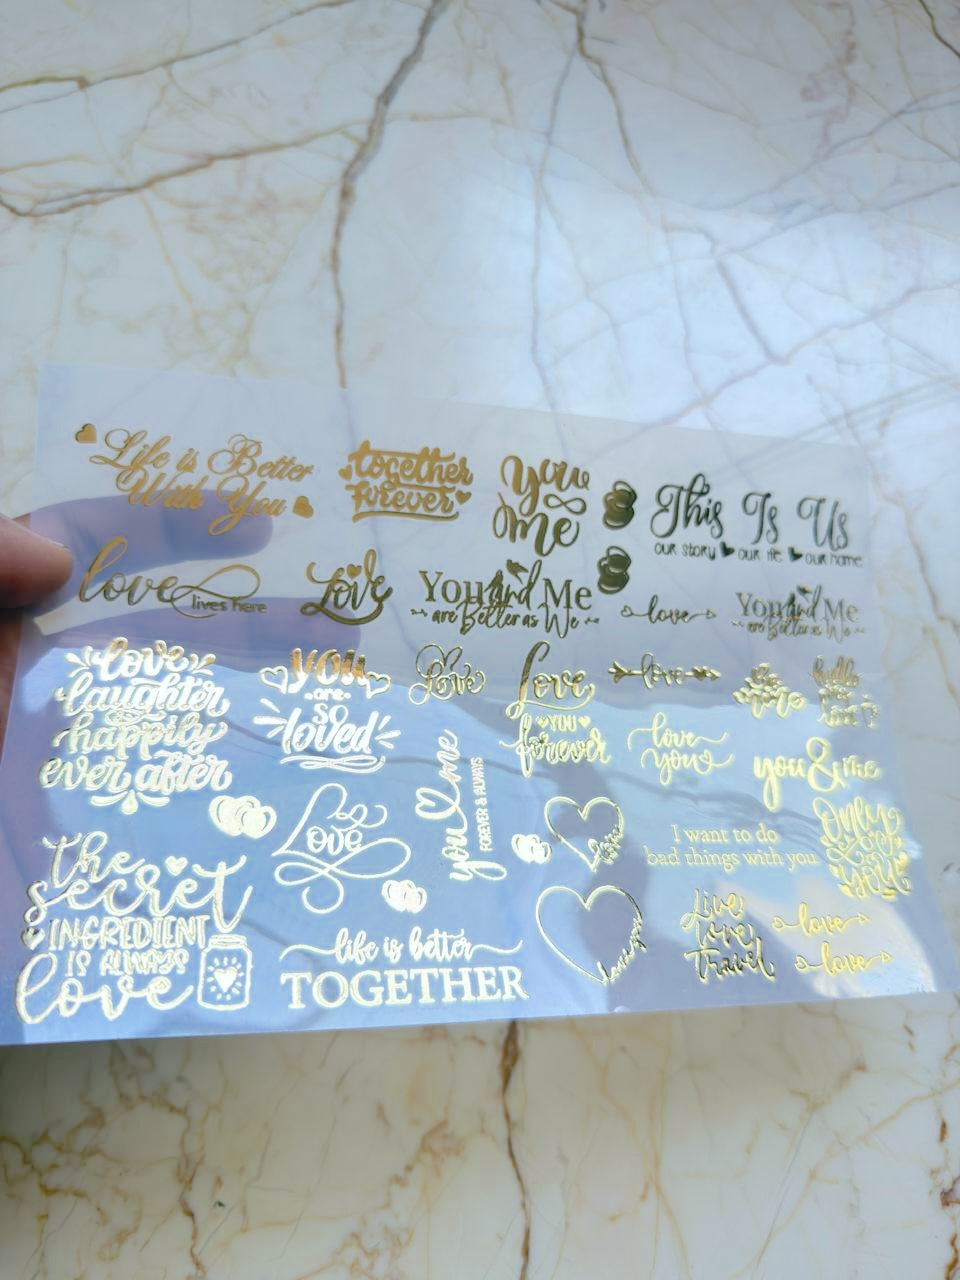 Life is Better
With You
together
forever
You
Me
This Is Us
our story our life our home
love
lives here
Love
You and Me
are Better as We
love
You and Me
are Better as We
love
laughter
happily
ever after
you
are
so
loved
Love
Love
YOU
forever
love
hello
love
you
you & me
you me
FOREVER & ALWAYS
Love
I want to do
bad things with you
Only
you
the
secret
INGREDIENT
IS ALWAYS
love
life is better
TOGETHER
Live
Love
Travel
love
love